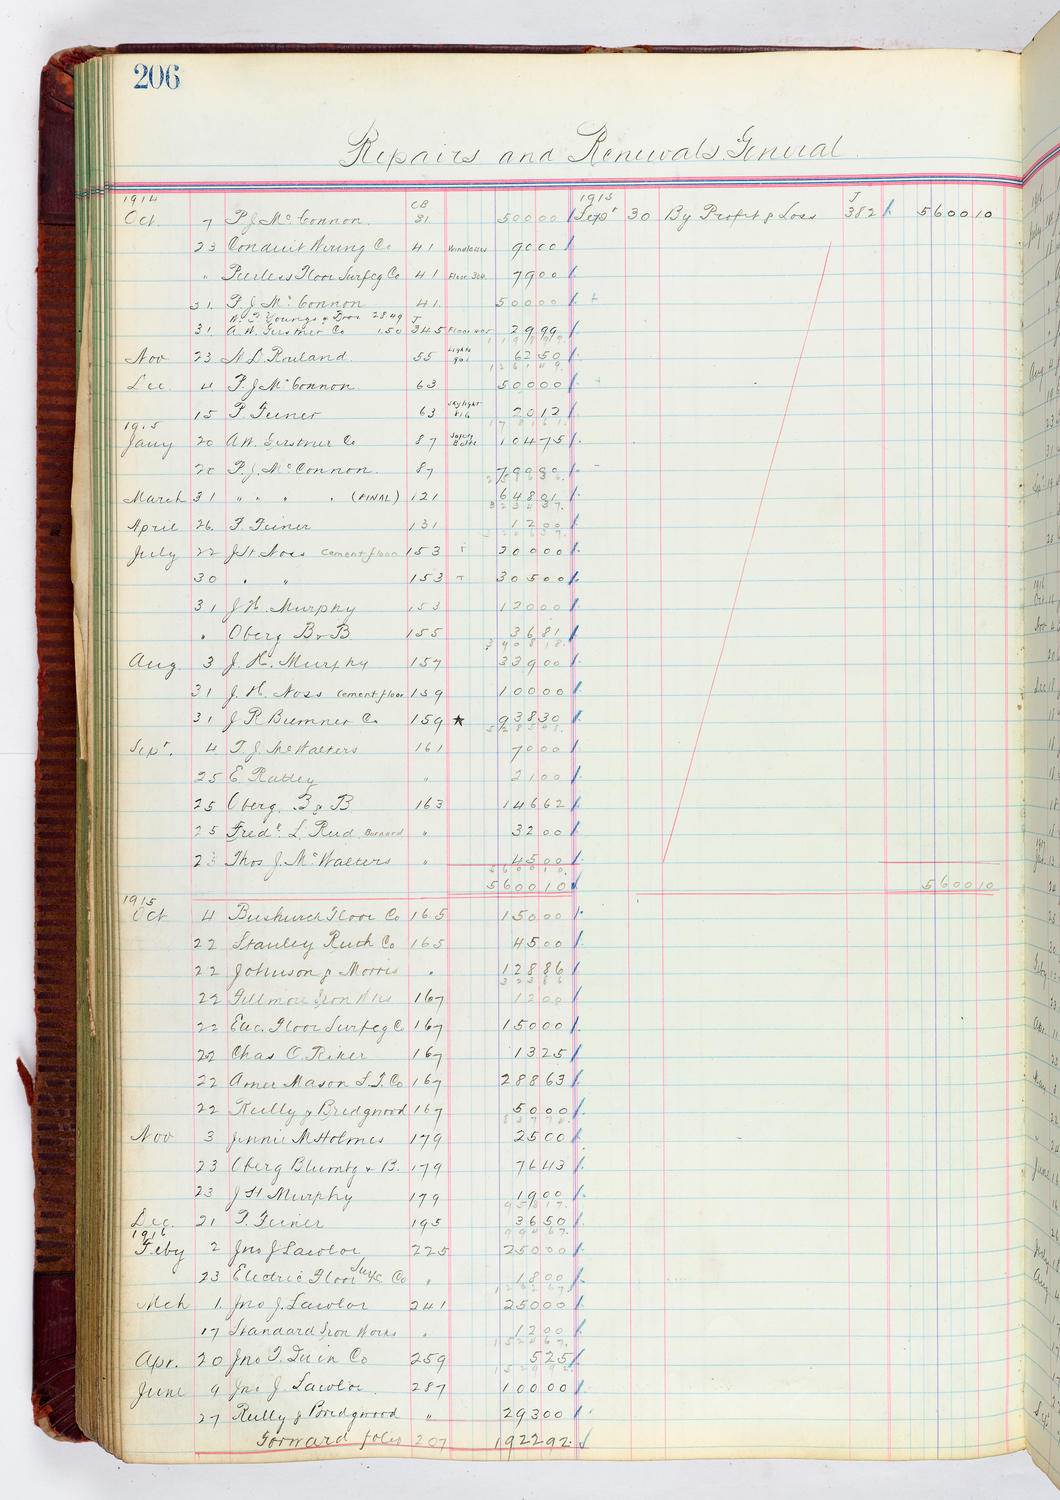 206
Repairs and Renewals General
1914 CB 1915 J
Oct. 7 P. J. McConnon. 31 50000 Sept 30 By Profit & Loss 382 560010
23 Conduit Wiring Co 41 9000
" Peerless Floor Surfcg Co 41 7900
31. P. J. McConnon 41. 50000
31. A. W. Gerstner Co 150 J 345 2999
119899.
Nov 23. N. L. Rouland. 55 Lights 6250
126149.
Dec. 4. P. J. McConnon. 63 50000
15 P. Feiner 63 Skylight 2012
178161.
1915
Jany 20 A. W. Gerstner Co 87 Safety 10475
20 P. J. McConnon. 87
March 31 " " " " (FINAL) 121 64801
323437.
April 26. P. Feiner 131 1200
July 22 J. H. Noss Cement floor 153 30000
30 " " 153 30500
31 J. H. Murphy 153 12000
" Oberg B & B 155 3681
390818.
Aug 3 J. H. Murphy 157 33900
31 J. H. Noss Cement floor 159 10000
31 J. R. Bremner Co. 159 ★ 93830
528548.
Sept. 4. T. J. McWalters 161 7000
25 E. Ratley " 2100
25 Oberg. B & B 163 14662
25 Fredk. L. Rud " 3200
23 Thos J. McWalters " 4500
560010.
560010 560010
1915
Oct 4 Bushwick Floor Co 165 15000
22 Stanley Ruth Co 165 4500
22 Johnson & Morris " 12886
32386
22 Gillmore Iron Wks 167 1200
22 Elec. Floor Surfcg C. 167 15000
22 Chas O. Riker 167 1325
22 Amer Mason S. T. Co 167 28863
22 Reilly & Bridgwood 167 5000
83774.
Nov 3 Jennie M Holmes 179 2500
23 Oberg Blumbg & B. 179 7643
23 J. H. Murphy 179 1900
95817.
Dec. 21 P. Feiner 195 3650
99467.
1916
Feby 2 Jno J Lawlor 225 25000
23 Electric Floor Surfg Co " 1800
126267.
Mch 1. Jno J. Lawlor 241 25000
17 Standard Iron Works " 1200
152467.
Apr. 20 Jno T. Quin Co 259 525
152992.
June 9 Jno J. Lawlor. 287 10000
27 Reilly & Bridgwood " 29300
Forward folio 207 192292.